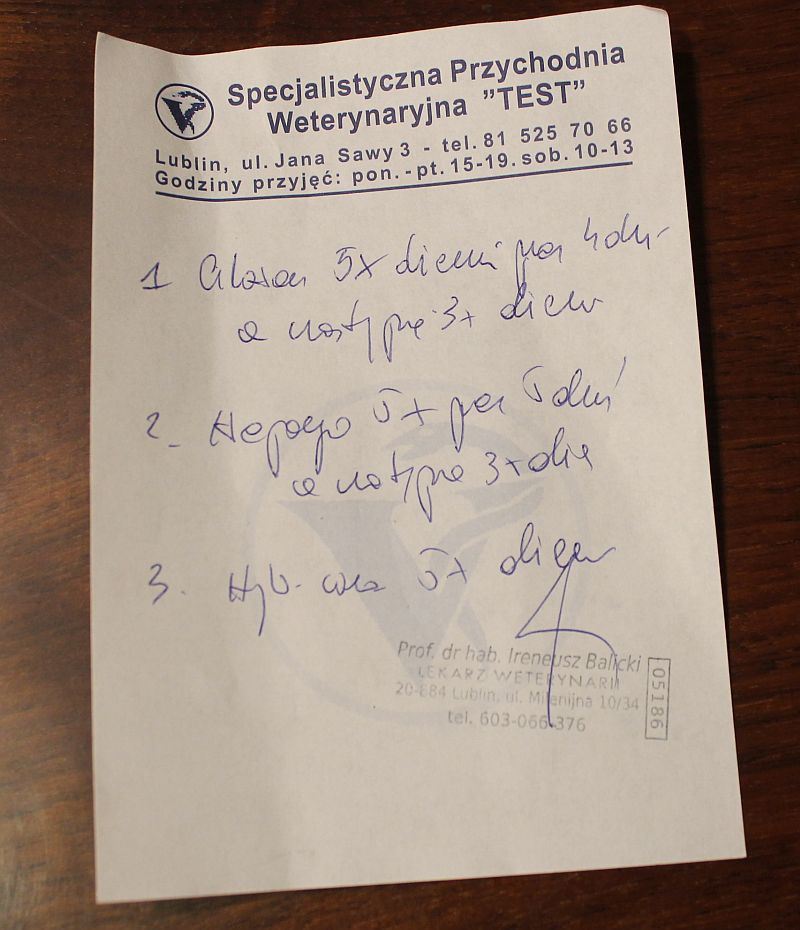 Specjalistyczna Przychodnia
Weterynaryjna ”TEST”
Lublin, ul. Jana Sawy 3 - tel. 81 525 70 66
Godziny przyjęć: pon. - pt. 15-19. sob. 10-13
1 5x dzien 4 dni
a następnie 3x dzien
2_ 5x 5 dni
a następnie 3x
3. 5x dzien
Prof. dr hab. Ireneusz Balicki
LEKARZ WETERYNARII
20-884 Lublin, ul. Milenijna 10/34
tel. 603-066-376
05186